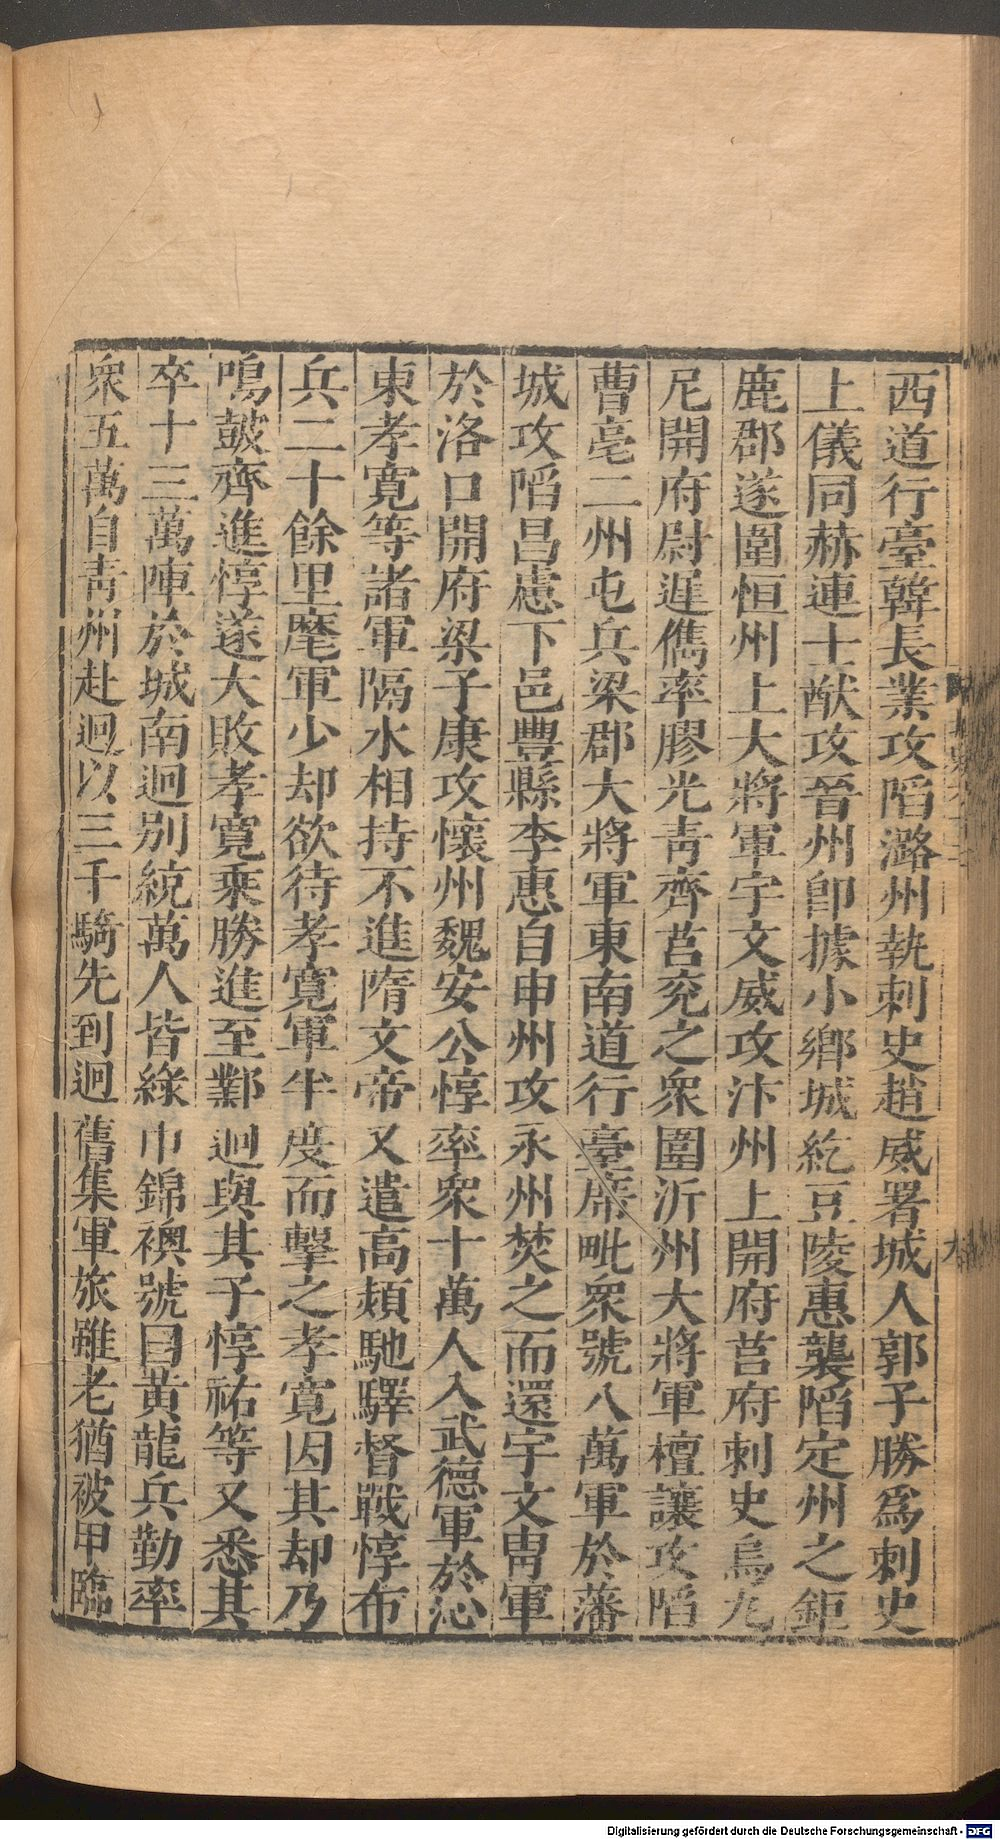 西道行臺韓長業攻陷潞州執刺史趙威署城人郭子勝爲刺史
上儀同赫連士猷攻晉州卽據小鄉城紇豆陵惠襲陷定州之鉅
鹿郡遂圍恒州上大將軍宇文威攻汴州上開府莒府刺史烏九
尼開府尉遲儁率膠光靑齊莒兖之衆圍沂州大將軍檀讓攻陷
曹亳二州屯兵梁郡大將軍東南道行臺席毗衆號八萬軍於藩
城攻陷昌慮下邑豐縣李惠自申州攻永州焚之而還宇文胄軍
於洛口開府梁子康攻懷州魏安公惇率衆十萬人入武德軍於沁
東孝寬等諸軍隔水相持不進隋文帝又遣高熲馳驛督戰惇布
兵二十餘里麾軍少却欲待孝寬軍半度而擊之孝寬因其却乃
鳴鼓齊進惇遂大敗孝寬乘勝進至鄴迥與其子惇祐等又悉其
卒十三萬陣於城南迥別統萬人皆綠巾錦襖號曰黄龍兵勤率
衆五萬自靑州赴迥以三千騎先到迥舊集軍旅雖老猶被甲臨
Digitalisierung gefördert durch die Deutsche Forschungsgemeinschaft - DFG